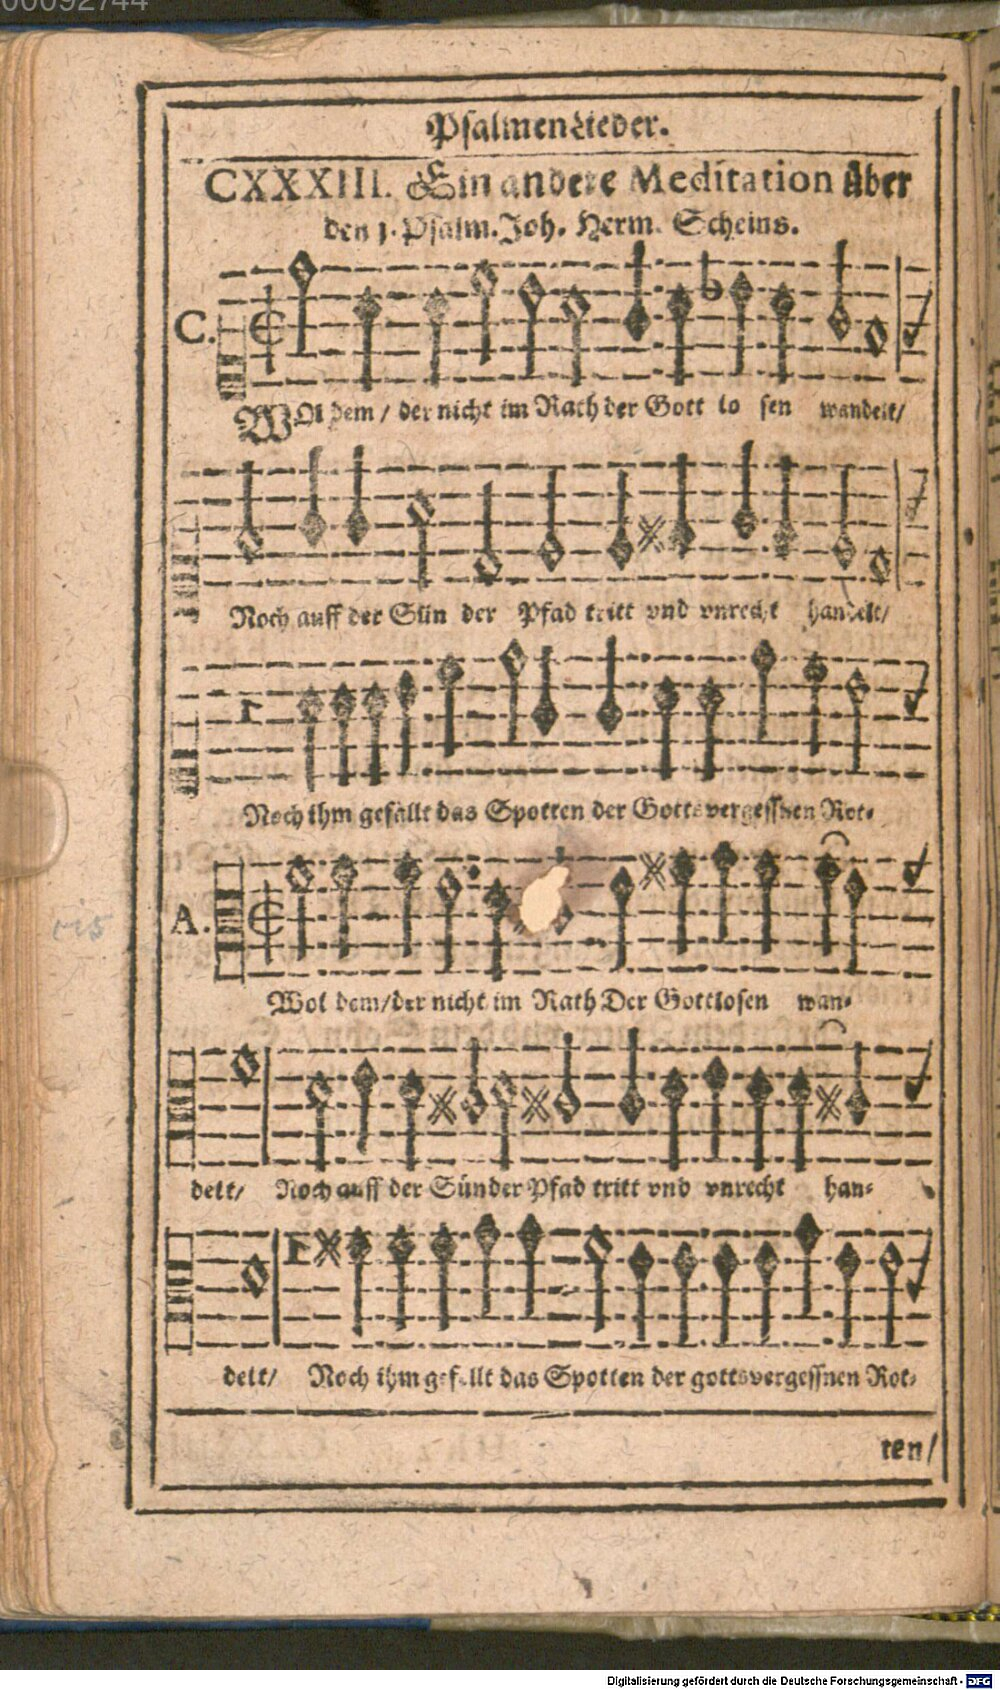 00092744
PsalmenLieder.
CXXXIII. Ein andere Meditation über
den 1. Psalm. Joh. Herm. Scheins.
C.
WOl dem / der nicht im Rath der Gott lo sen wandelt/
Noch auff der Sün der Pfad tritt vnd vnrecht handelt/
Noch ihm gefällt das Spotten der Gottsvergeßnen Rot-
A.
Wol dem/der nicht im Rath Der Gottlosen wan-
delt/ Noch auff der Sünder Pfad tritt vnd vnrecht han-
delt/ Noch ihm gefällt das Spotten der gottsvergeßnen Rot-
ten/
Digitalisierung gefördert durch die Deutsche Forschungsgemeinschaft - DFG